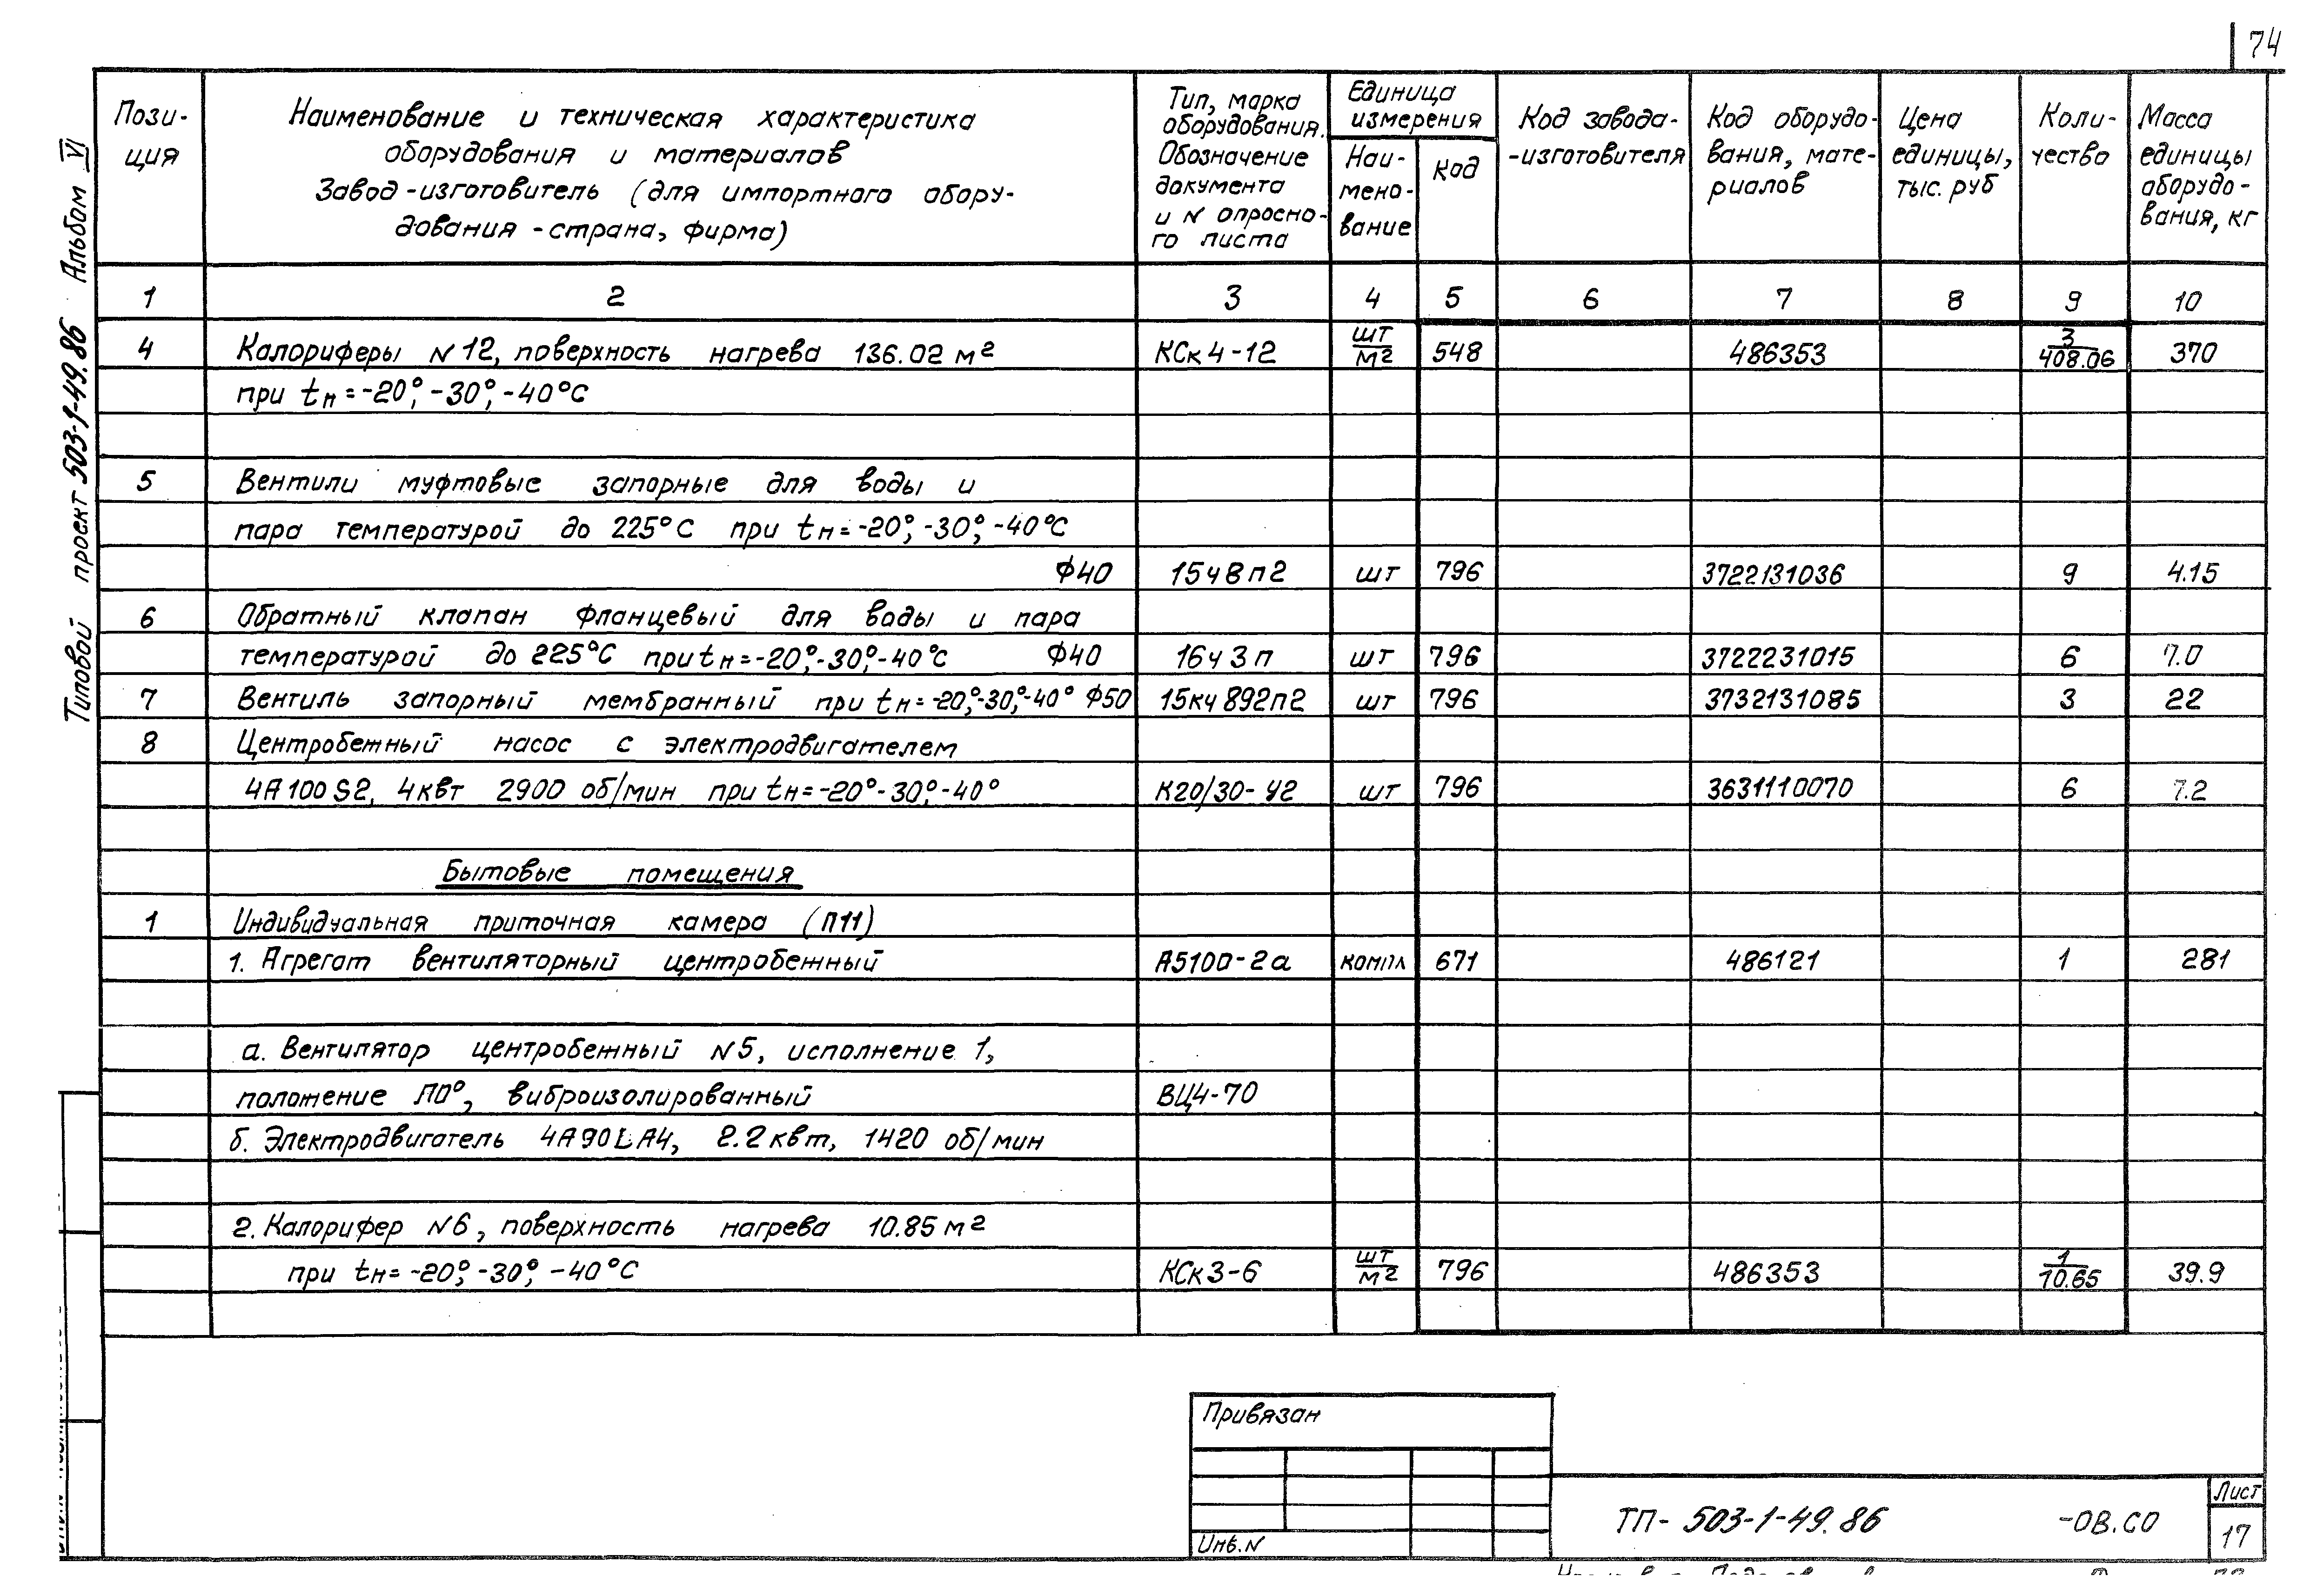 74
Типовой проект 503-1-49.86 Альбом VI
Пози-
ция
Наименование и техническая характеристика
оборудования и материалов
Завод-изготовитель (для импортного обору-
дования - страна, фирма)
Тип, марка
оборудования.
Обозначение
документа
и N опросно-
го листа
Единица
измерения
Наи-
мено-
вание
Код
Код завода-
-изготовителя
Код оборудо-
вания, мате-
риалов
Цена
единицы,
тыс. руб
Коли-
чество
Масса
единицы
оборудо-
вания, кг
1 2 3 4 5 6 7 8 9 10
4 Калориферы N12, поверхность нагрева 136.02 м2 КСк 4-12 шт/м2 548 486353 3/408.06 370
при tн=-20°, -30°, -40°C
5 Вентили муфтовые запорные для воды и
пара температурой до 225°C при tн=-20°, -30°, -40°C
Ф40 15ч8п2 шт 796 3722131036 9 4.15
6 Обратный клапан фланцевый для воды и пара
температурой до 225°C при tн=-20°,-30°,-40°C Ф40 16ч3п шт 796 3722231015 6 7.0
7 Вентиль запорный мембранный при tн=-20°,-30°,-40° Ф50 15кч892п2 шт 796 3732131085 3 22
8 Центробежный насос с электродвигателем
4А100S2, 4квт 2900 об/мин при tн=-20°-30°,-40° К20/30-У2 шт 796 3631110070 6 7.2
Бытовые помещения
1 Индивидуальная приточная камера (П11)
1. Агрегат вентиляторный центробежный А5100-2а компл 671 486121 1 281
а. Вентилятор центробежный N5, исполнение 1,
положение Л0°, виброизолированный ВЦ4-70
б. Электродвигатель 4А90LА4, 2.2квт, 1420 об/мин
2. Калорифер N6, поверхность нагрева 10.85 м2
при tн=-20°, -30°, -40°C КСк3-6 шт/м2 796 486353 1/10.65 39.9
Привязан
Инв.N
ТП- 503-1-49.86 -ОВ.СО
Лист
17